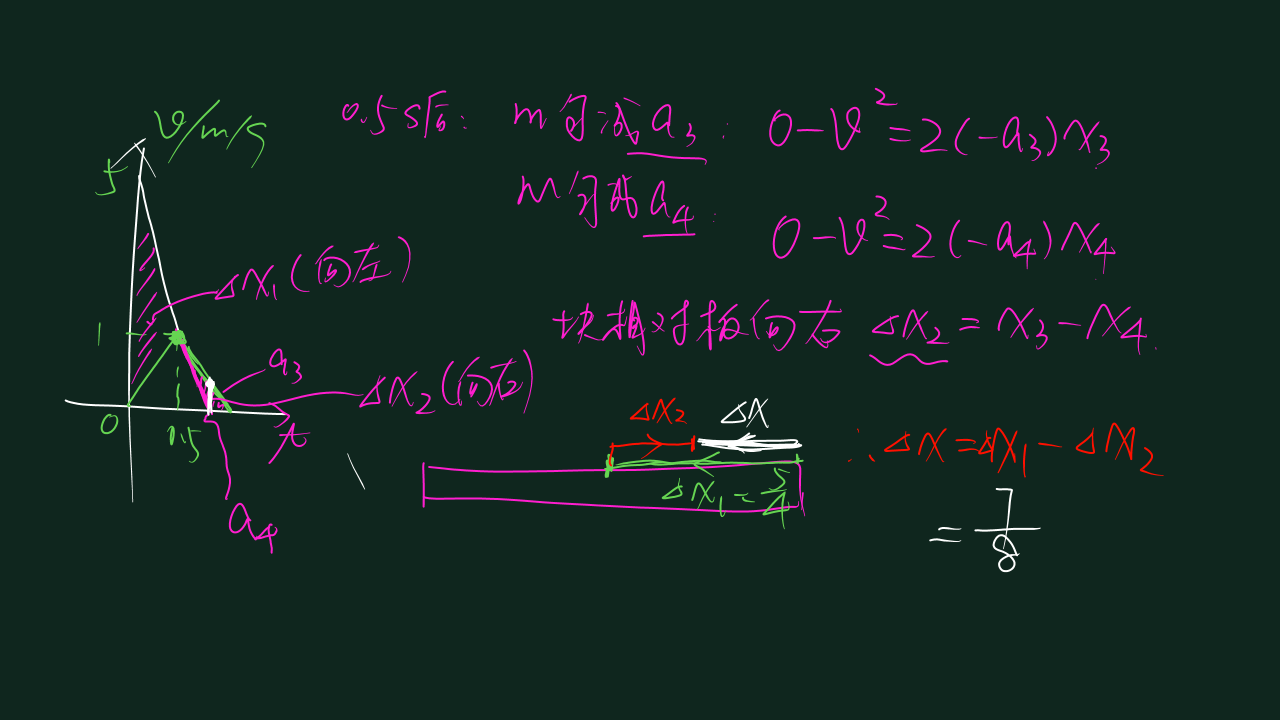 v/m/s
5
1
0
0.5
t
Δx₁(向左)
a₃
Δx₂(向右)
a₄
0.5s后: m匀减a₃: 0-v²=2(-a₃)x₃
M匀减a₄: 0-v²=2(-a₄)x₄
块相对板向右 Δx₂=x₃-x₄
Δx₂ Δx
Δx₁=5/4
∴Δx=Δx₁-Δx₂
=7/8